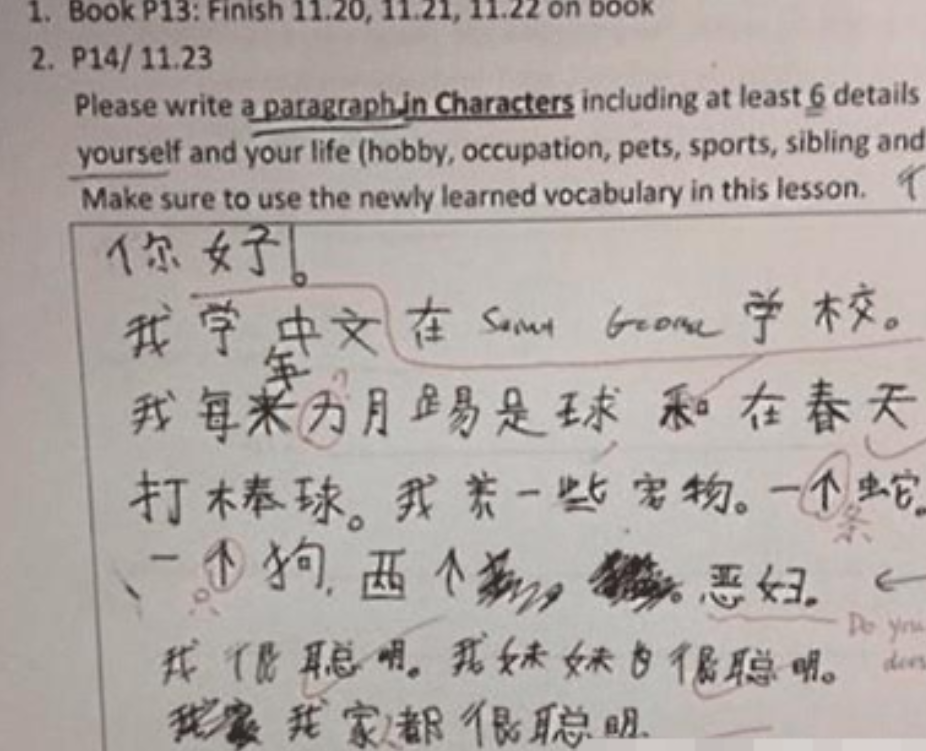 1. Book P13: Finish 11.20, 11.21, 11.22 on book
2. P14/ 11.23
Please write a paragraph in Characters including at least 6 details
yourself and your life (hobby, occupation, pets, sports, sibling and
Make sure to use the newly learned vocabulary in this lesson.
你好!。
我学中文在 学校。
年
我每 月踢是球和在春天
打棒球。我养一些宠物。一个蛇。
条
一个狗,西个 恶妇。
Do you
我很聪明。我妹妹白很聪明。
我家都很聪明.